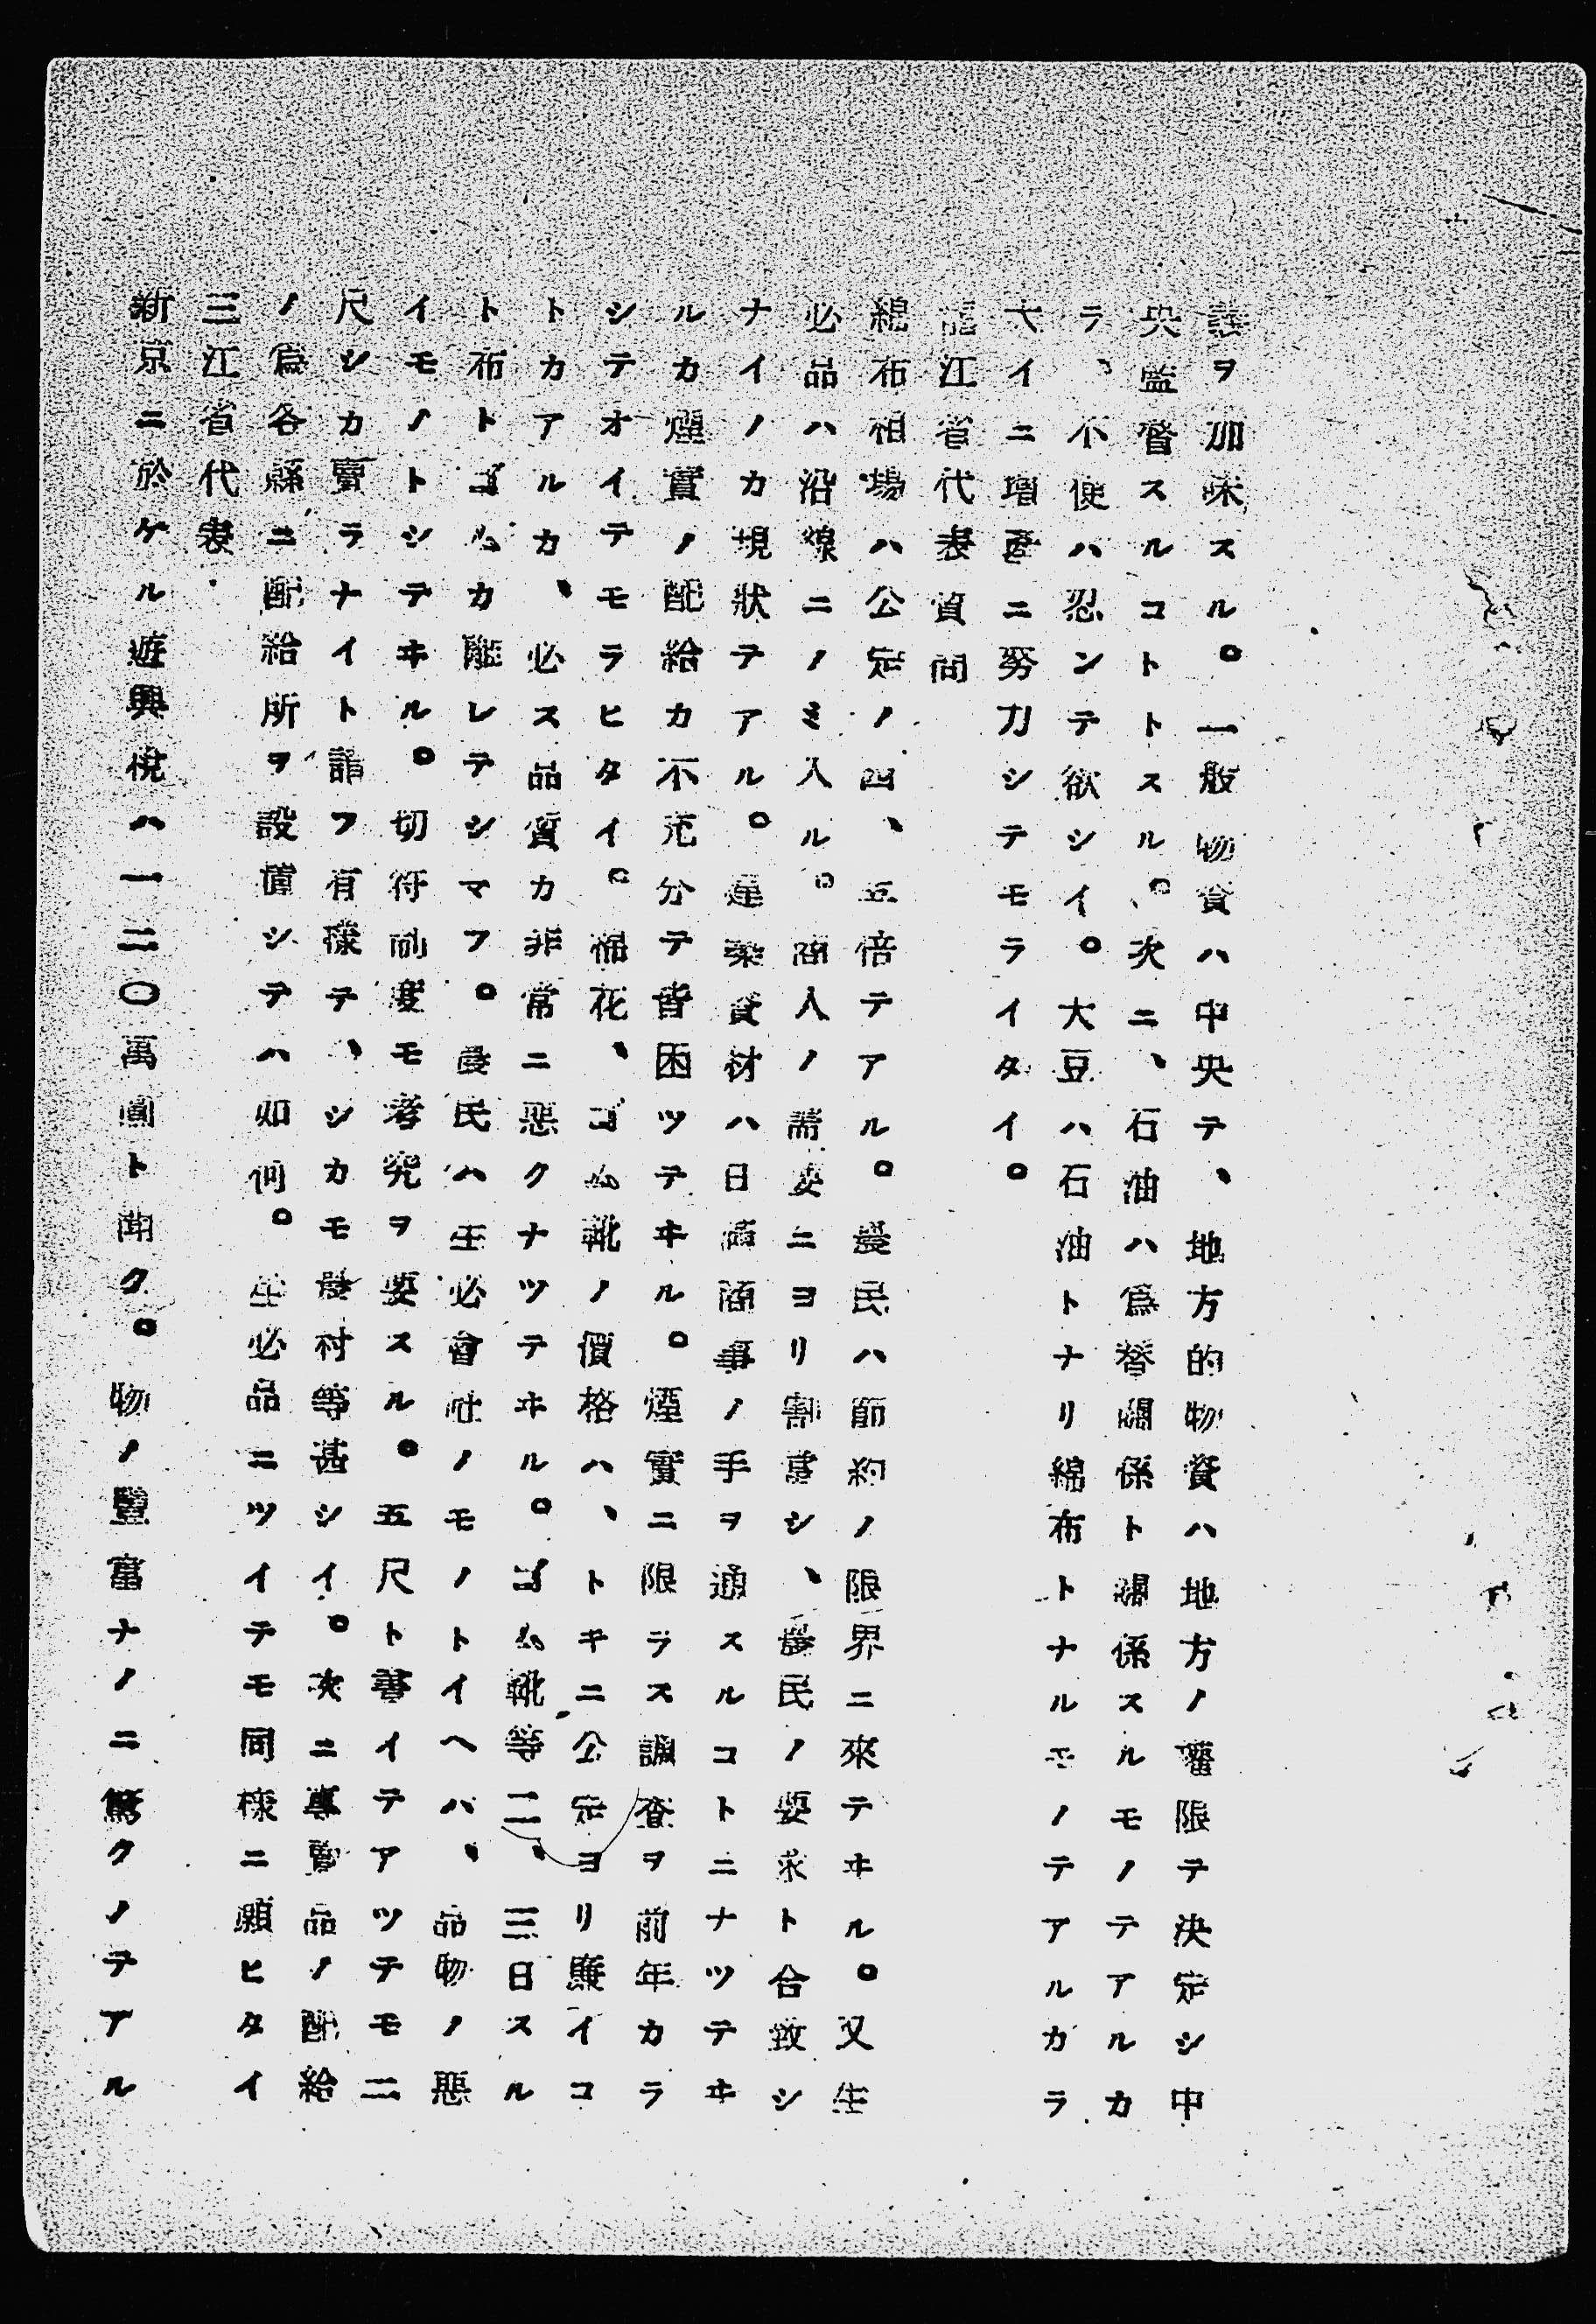 謠ヲ加味スル。一般物資ハ中央テ、地方的物資ハ地方ノ權限テ決定シ中
央監督スルコトトスル。次ニ、石油ハ爲替關係ト關係スルモノテアルカ
ラ、不便ハ忍ンテ欲シイ。大豆ハ石油トナリ綿布トナルモノテアルカラ
大イニ増産ニ努力シテモライタイ。
龍江省代表質問
綿布相場ハ公定ノ四、五倍テアル。農民ハ節約ノ限界ニ來テヰル。又生
必品ハ沿線ニノミ入ル。商人ノ需要ニヨリ割當シ、農民ノ要求ト合致シ
ナイノカ現狀テアル。建築資材ハ日滿商事ノ手ヲ通スルコトニナツテヰ
ルカ煙實ノ配給カ不充分テ皆困ツテヰル。煙實ニ限ラス調査ヲ前年カラ
シテオイテモラヒタイ。棉花、ゴム靴ノ價格ハ、トキニ公定ヨリ廉イコ
トカアルカ、必ス品質カ非常ニ惡クナツテヰル。ゴム靴等二、三日スル
ト布トゴムカ離レテシマフ。農民ハ生必會社ノモノトイヘハ、品物ノ惡
イモノトシテヰル。切符制度モ考究ヲ要スル。五尺ト書イテアツテモ二
尺シカ賣ラナイト謂フ有樣テ、シカモ農村等甚シイ。次ニ專賣品ノ配給
ノ爲各縣ニ配給所ヲ設置シテハ如何。生必品ニツイテモ同樣ニ願ヒタイ
三江省代表
新京ニ於ケル遊興稅ハ一二〇萬圓ト聞ク。物ノ豐富ナノニ驚クノテアル